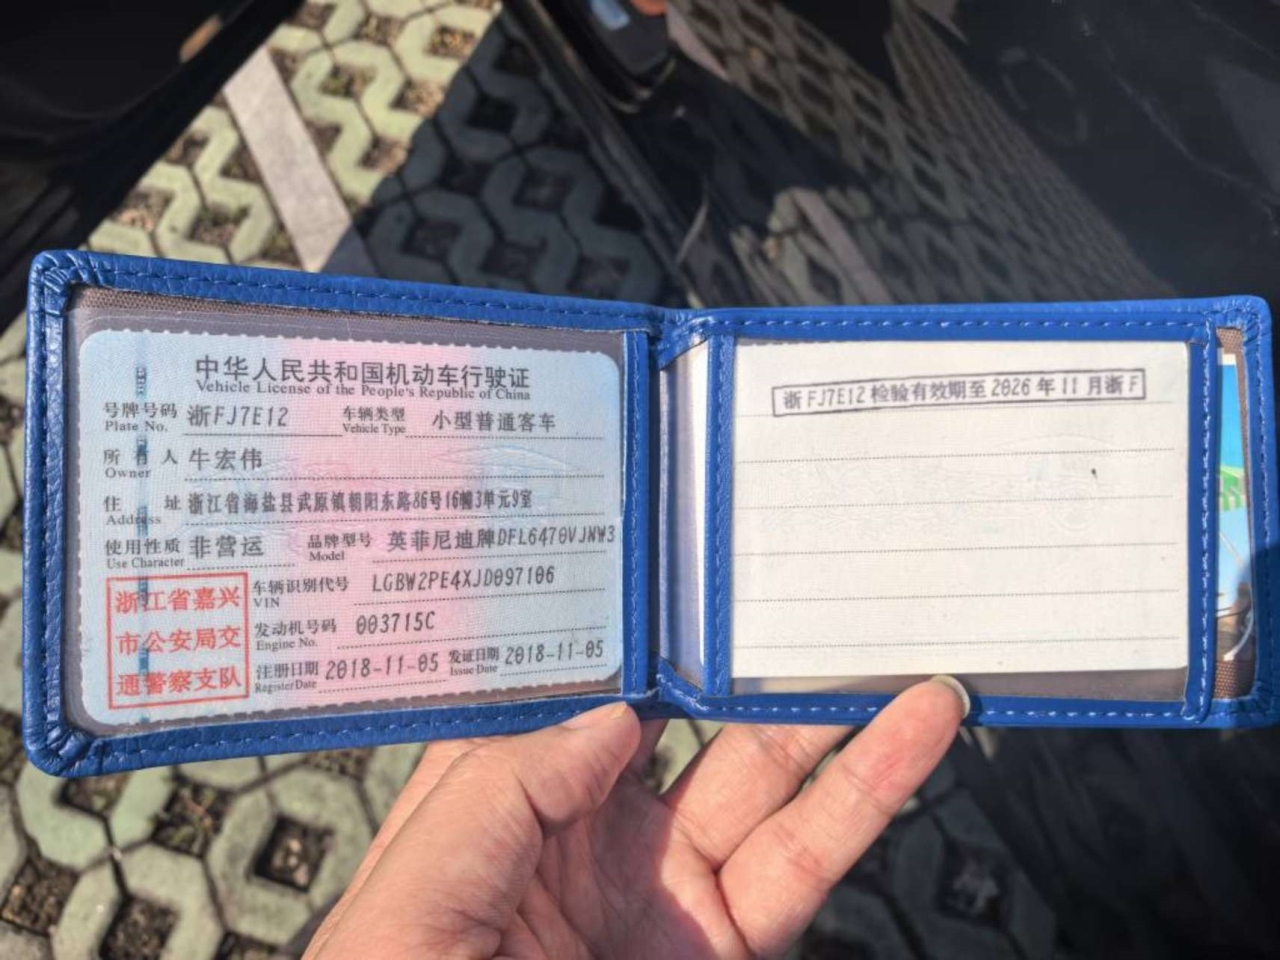 中华人民共和国机动车行驶证
Vehicle License of the People's Republic of China
号牌号码 浙FJ7E12 车辆类型 小型普通客车
Plate No. Vehicle Type
所有人 牛宏伟
Owner
住址 浙江省海盐县武原镇朝阳东路86号16幢3单元9室
Address
使用性质 非营运 品牌型号 英菲尼迪牌DFL6470VJNW3
Use Character Model
车辆识别代号 LGBW2PE4XJD097106
VIN
发动机号码 003715C
Engine No.
注册日期 2018-11-05 发证日期 2018-11-05
Register Date Issue Date
浙江省嘉兴
市公安局交
通警察支队
浙FJ7E12检验有效期至2026年11月浙F